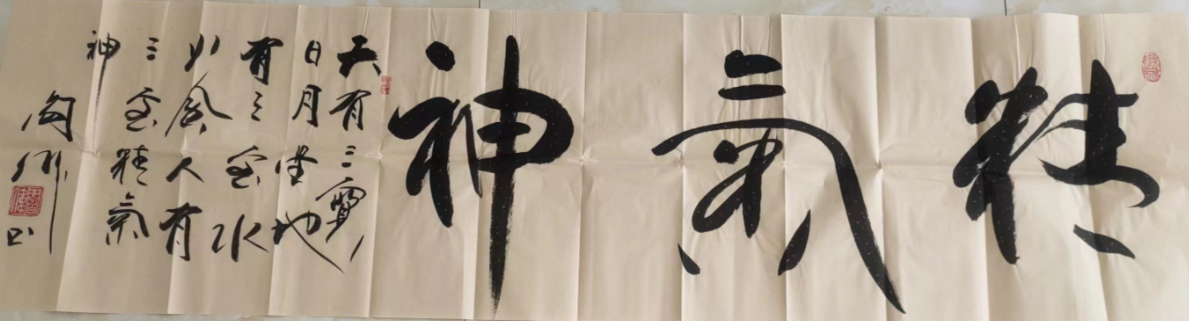 精氣神
天有三寶
日月星地
有三宝水
火風人有
三宝精氣
神
书